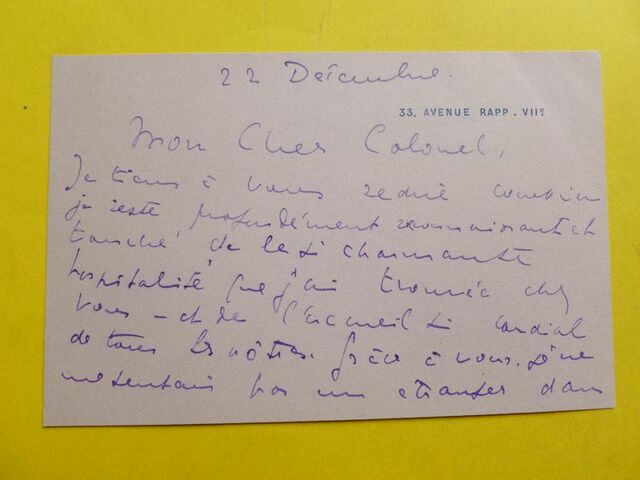 22 Décembre.
33, AVENUE RAPP. VIIE
Mon Cher Colonel,
Je tiens à vous redire combien
je reste profondément reconnaissant et
touché, de la si charmante
hospitalité que j'ai trouvée chez
vous - et de l'accueil si cordial
de tous les vôtres. Grâce à vous. je ne
me sentais pas un étranger dans